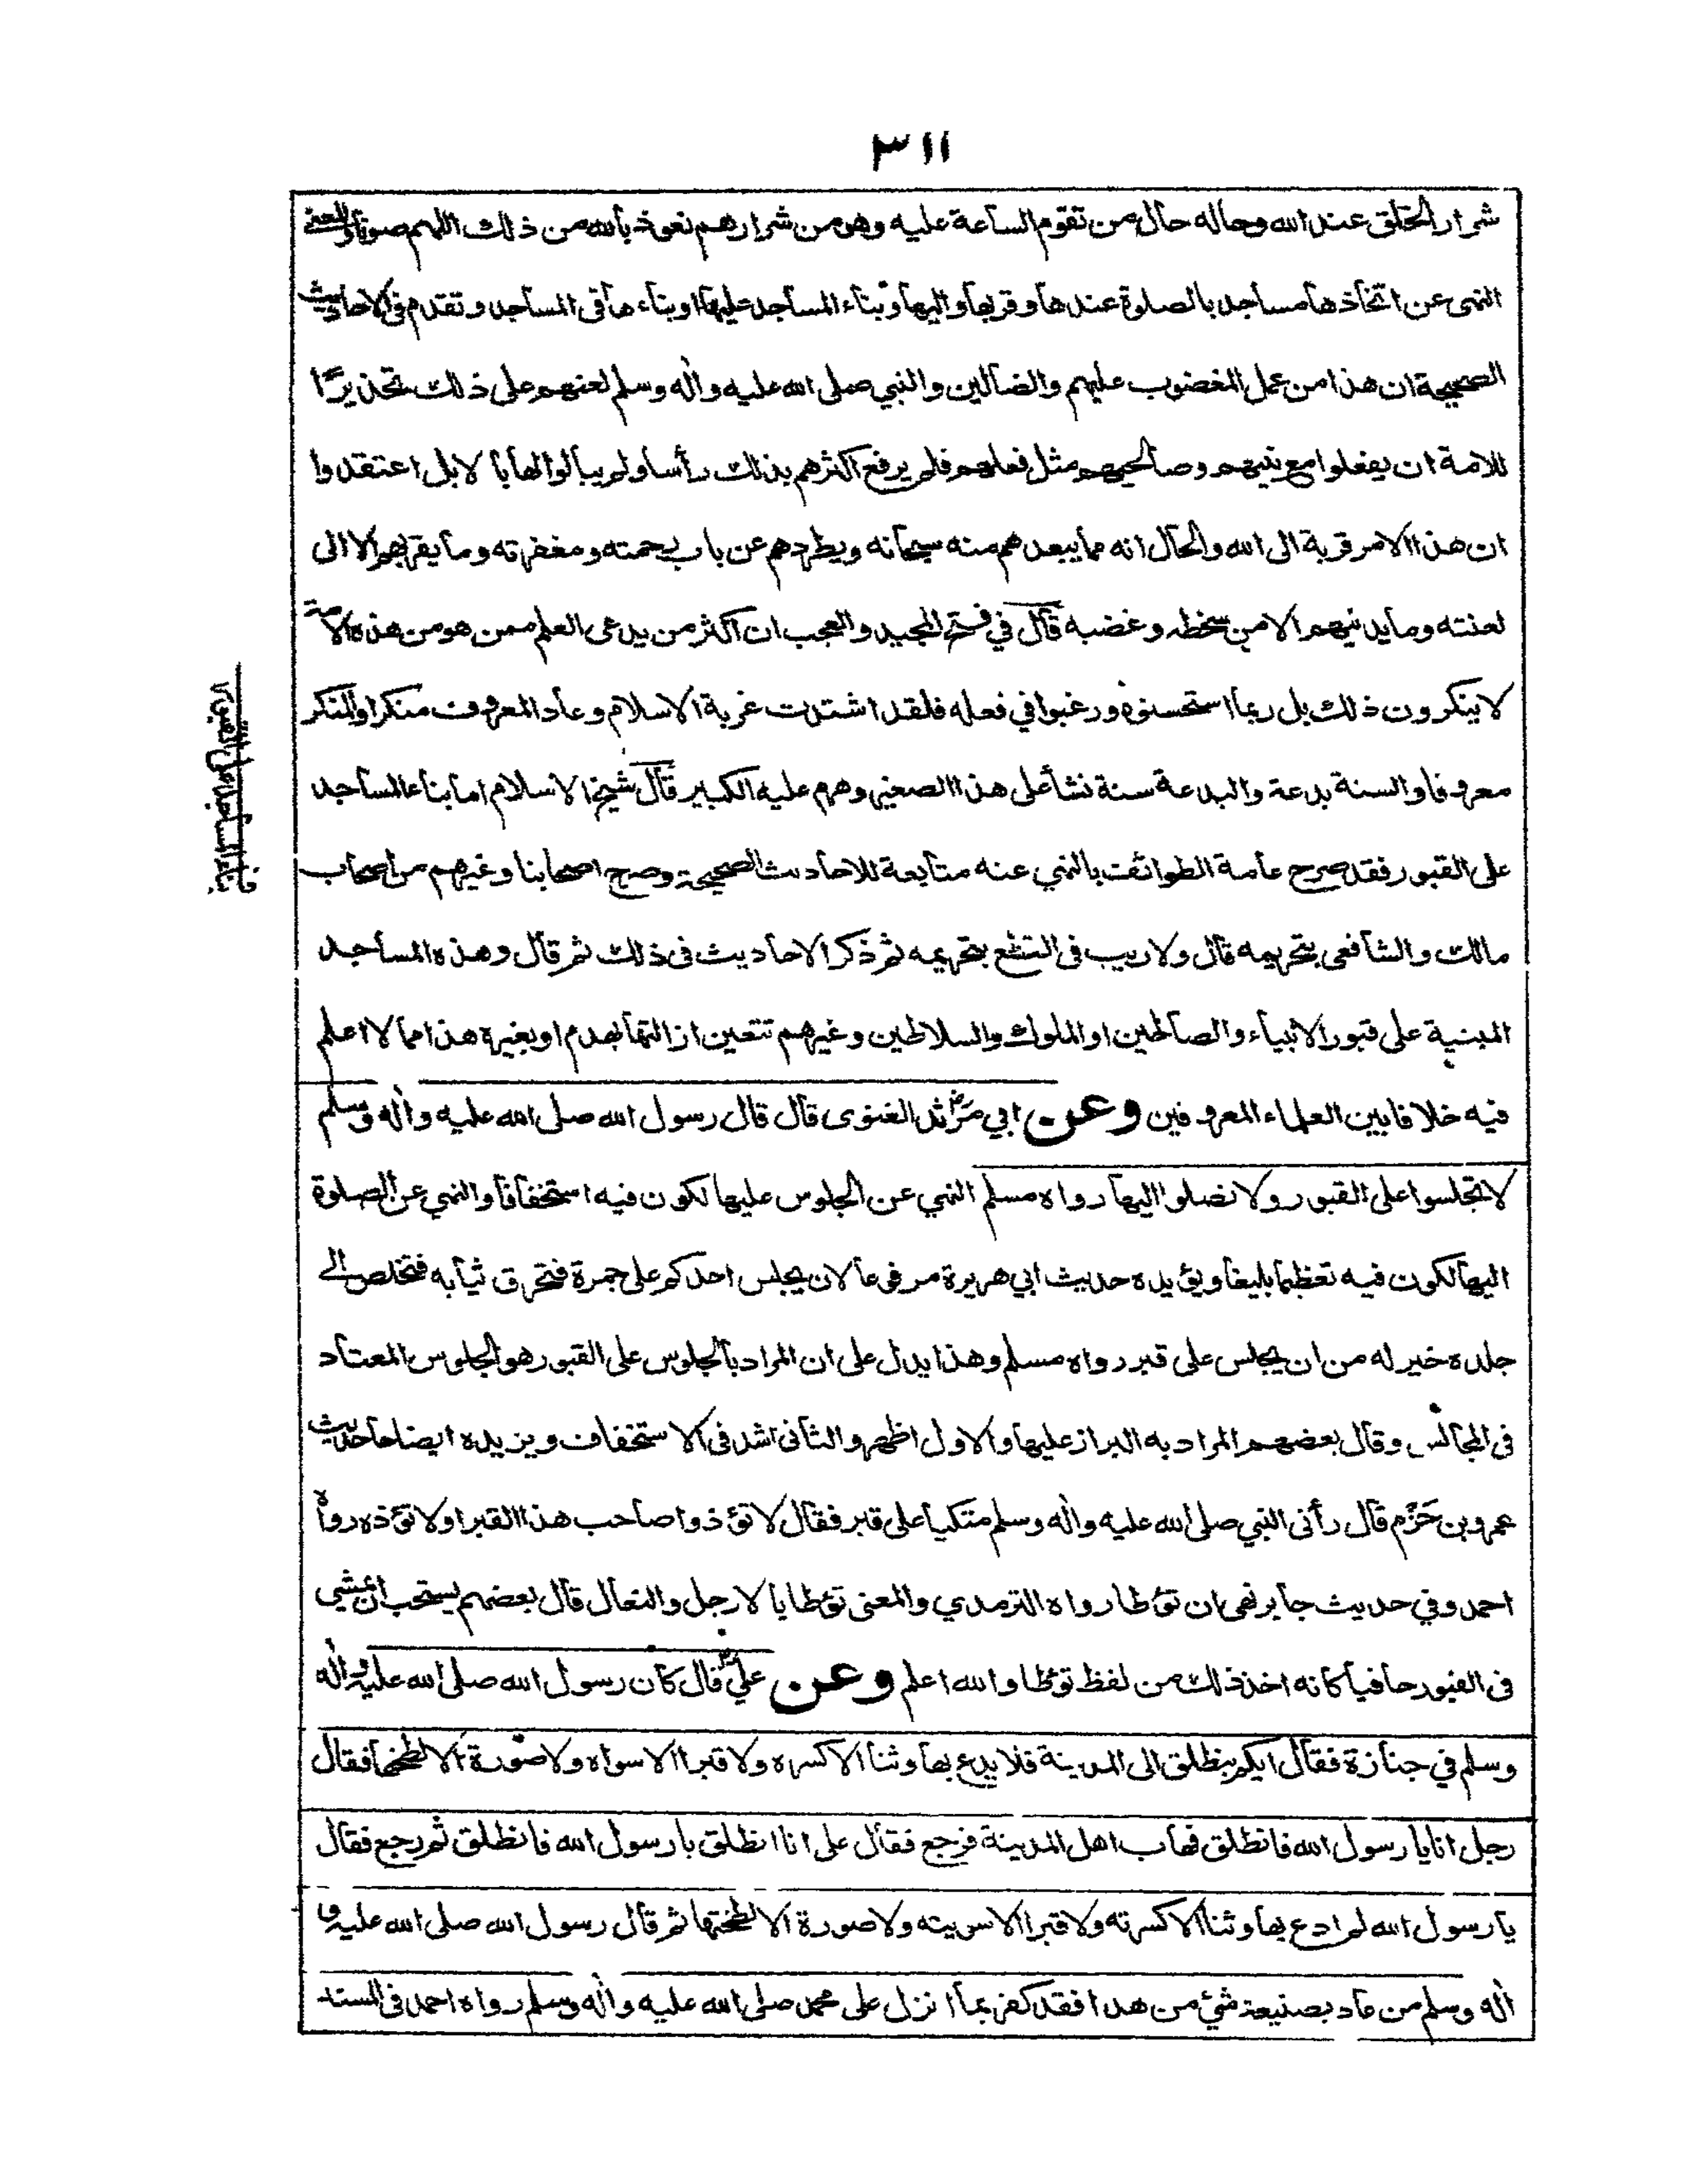 ٣١١
شرار الخلق عند الله وحاله حال من تقوم الساعة عليه وهو من شرارهم نعوذ بالله من ذلك اللهم صوناً والمعنى
النهى عن اتخاذها مساجد بالصلوة عندها وقربها واليها وبناء المساجد عليها او بناءها فى المساجد وتقدم فى الاحاديث
الصحيحة ان هذا من عمل المغضوب عليهم والضالين والنبي صلى الله عليه واٰله وسلم لعنهم على ذلك تحذيرًا
للامة ان يفعلوا مع نبيهم وصالحيهم مثل فعلهم فلم يرفع اكثرهم بذلك رأسا ولم يبالوا لها بالا بل اعتقدوا
ان هذا الامر قربة الى الله والحال انه مما يبعدهم منه سبحانه ويطردهم عن باب رحمته ومغفرته وما يقربهم الا الى
لعنته وما يدنيهم الا من سخطه وغضبه قال في فتح المجيد والعجب ان اكثر من يدعى العلم ممن هو من هذه الامة
لا ينكرون ذلك بل ربما استحسنوه ورغبوا في فعله فلقد اشتدت غربة الاسلام وعاد المعروف منكرا والمنكر
معروفا والسنة بدعة والبدعة سنة نشأ على هذا الصغير وهرم عليه الكبير قال شيخ الاسلام اما بناء المساجد
على القبور فقد صرح عامة الطوائف بالنهي عنه متابعة للاحاديث الصحيحة وصرح اصحابنا وغيرهم من اصحاب
مالك والشافعى بتحريمه قال ولا ريب فى القطع بتحريمه ثم ذكر الاحاديث فى ذلك ثم قال وهذه المساجد
المبنية على قبور الانبياء والصالحين او الملوك والسلاطين وغيرهم تتعين ازالتها بهدم او بغيره هذا مما لا اعلم
فيه خلافا بين العلماء المعروفين وعن ابي مرثد الغنوى قال قال رسول الله صلى الله عليه واٰله وسلم
لا تجلسوا على القبور ولا تصلوا اليها رواه مسلم النهي عن الجلوس عليها لكون فيه استخفافا والنهي عن الصلوة
اليها لكون فيه تعظيما بليغا ويؤيده حديث ابي هريرة مرفوعا لان يجلس احدكم على جمرة فتحرق ثيابه فتخلص الى
جلده خير له من ان يجلس على قبر رواه مسلم وهذا يدل على ان المراد بالجلوس على القبور هو الجلوس المعتاد
فى المجالس وقال بعضهم المراد به البراز عليها والاول اظهر والثانى اشد فى الاستخفاف ويزيده ايضاحا حديث
عمرو بن حَزْم قال رأنى النبي صلى الله عليه واٰله وسلم متكيا على قبر فقال لا تؤذوا صاحب هذا القبر او لا تؤذه رواه
احمد وفي حديث جابر نهى ان تؤطا رواه الترمذي والمعنى تؤطا بالارجل والنعال قال بعضهم يستحب ان يمشي
فى القبور حافيا كانه اخذ ذلك من لفظ توطا والله اعلم وعن علي قال كان رسول الله صلى الله عليه واٰله
وسلم في جنازة فقال ايكم ينطلق الى المدينة فلا يدع بها وثنا الا كسره ولا قبرا الا سواه ولا صورة الا لطخها فقال
رجل انا يا رسول الله فانطلق فهاب اهل المدينة فرجع فقال على انا انطلق يا رسول الله فانطلق ثم رجع فقال
يا رسول الله لم ادع بها وثنا الا كسرته ولا قبرا الا سويته ولا صورة الا لطختها ثم قال رسول الله صلى الله عليه و
اٰله وسلم من عاد بصنيعة شئ من هذا فقد كفر بما انزل على محمد صلى الله عليه واٰله وسلم رواه احمد فى المسند
فى بناء المساجد على القبور